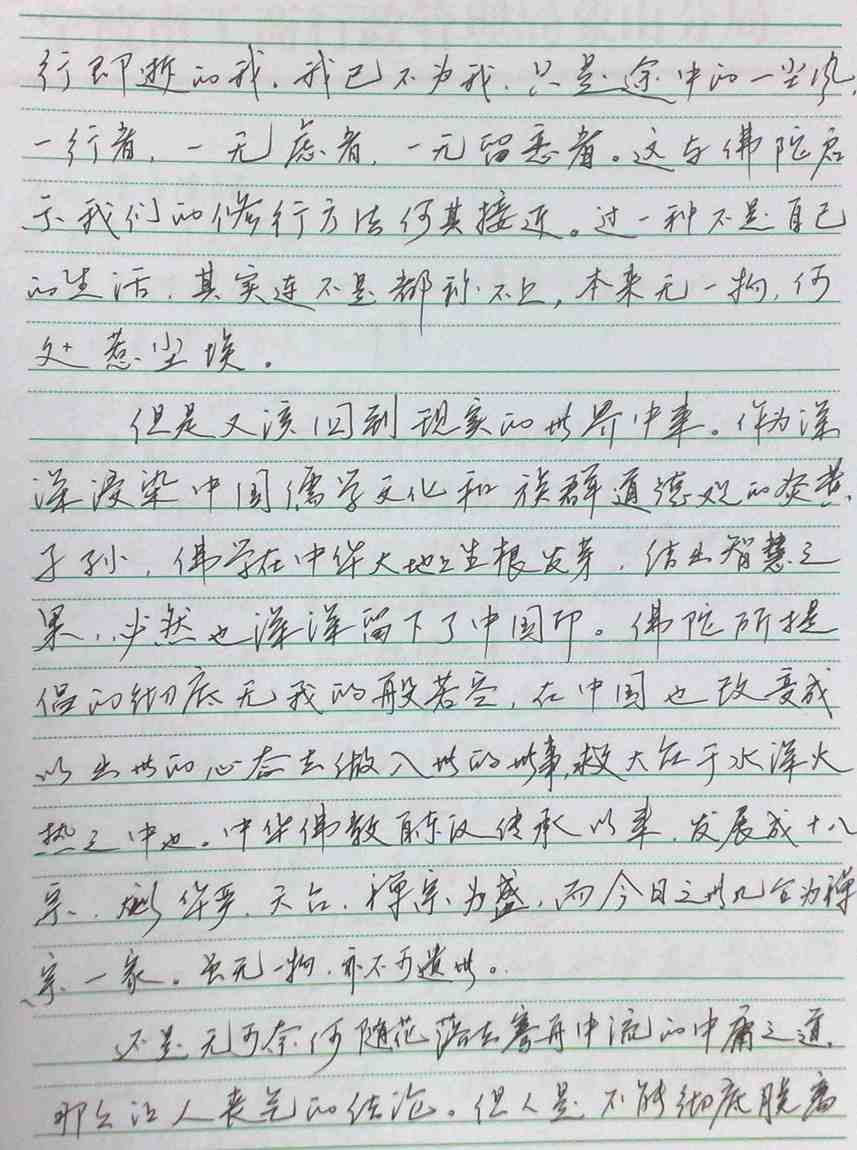 行即逝的我。我已不为我,只是途中的一尘风,
一行者,一无虑者,一无留恋者。这与佛陀启
示我们的修行方法何其接近。过一种不是自己
的生活,其实连不是都称不上,本来无一物,何
处惹尘埃。
但是又该回到现实的世界中来。作为深
深浸染中国儒学文化和族群道德观的炎黄
子孙,佛学在中华大地上生根发芽,结出智慧之
果,必然也深深留下了中国印。佛陀所提
倡的彻底无我的般若空,在中国也改变成
以出世的心态去做入世的世事,救大众于水深火
热之中也。中华佛教自东汉传承以来,发展成十八
宗,华严、天台、禅宗为盛,而今日之世几全为禅
宗一家。虽无一物,亦不可遗世。
还是无可奈何随花落去 中流的中庸之道,
那么让人丧气的结论。但人是不能彻底脱离